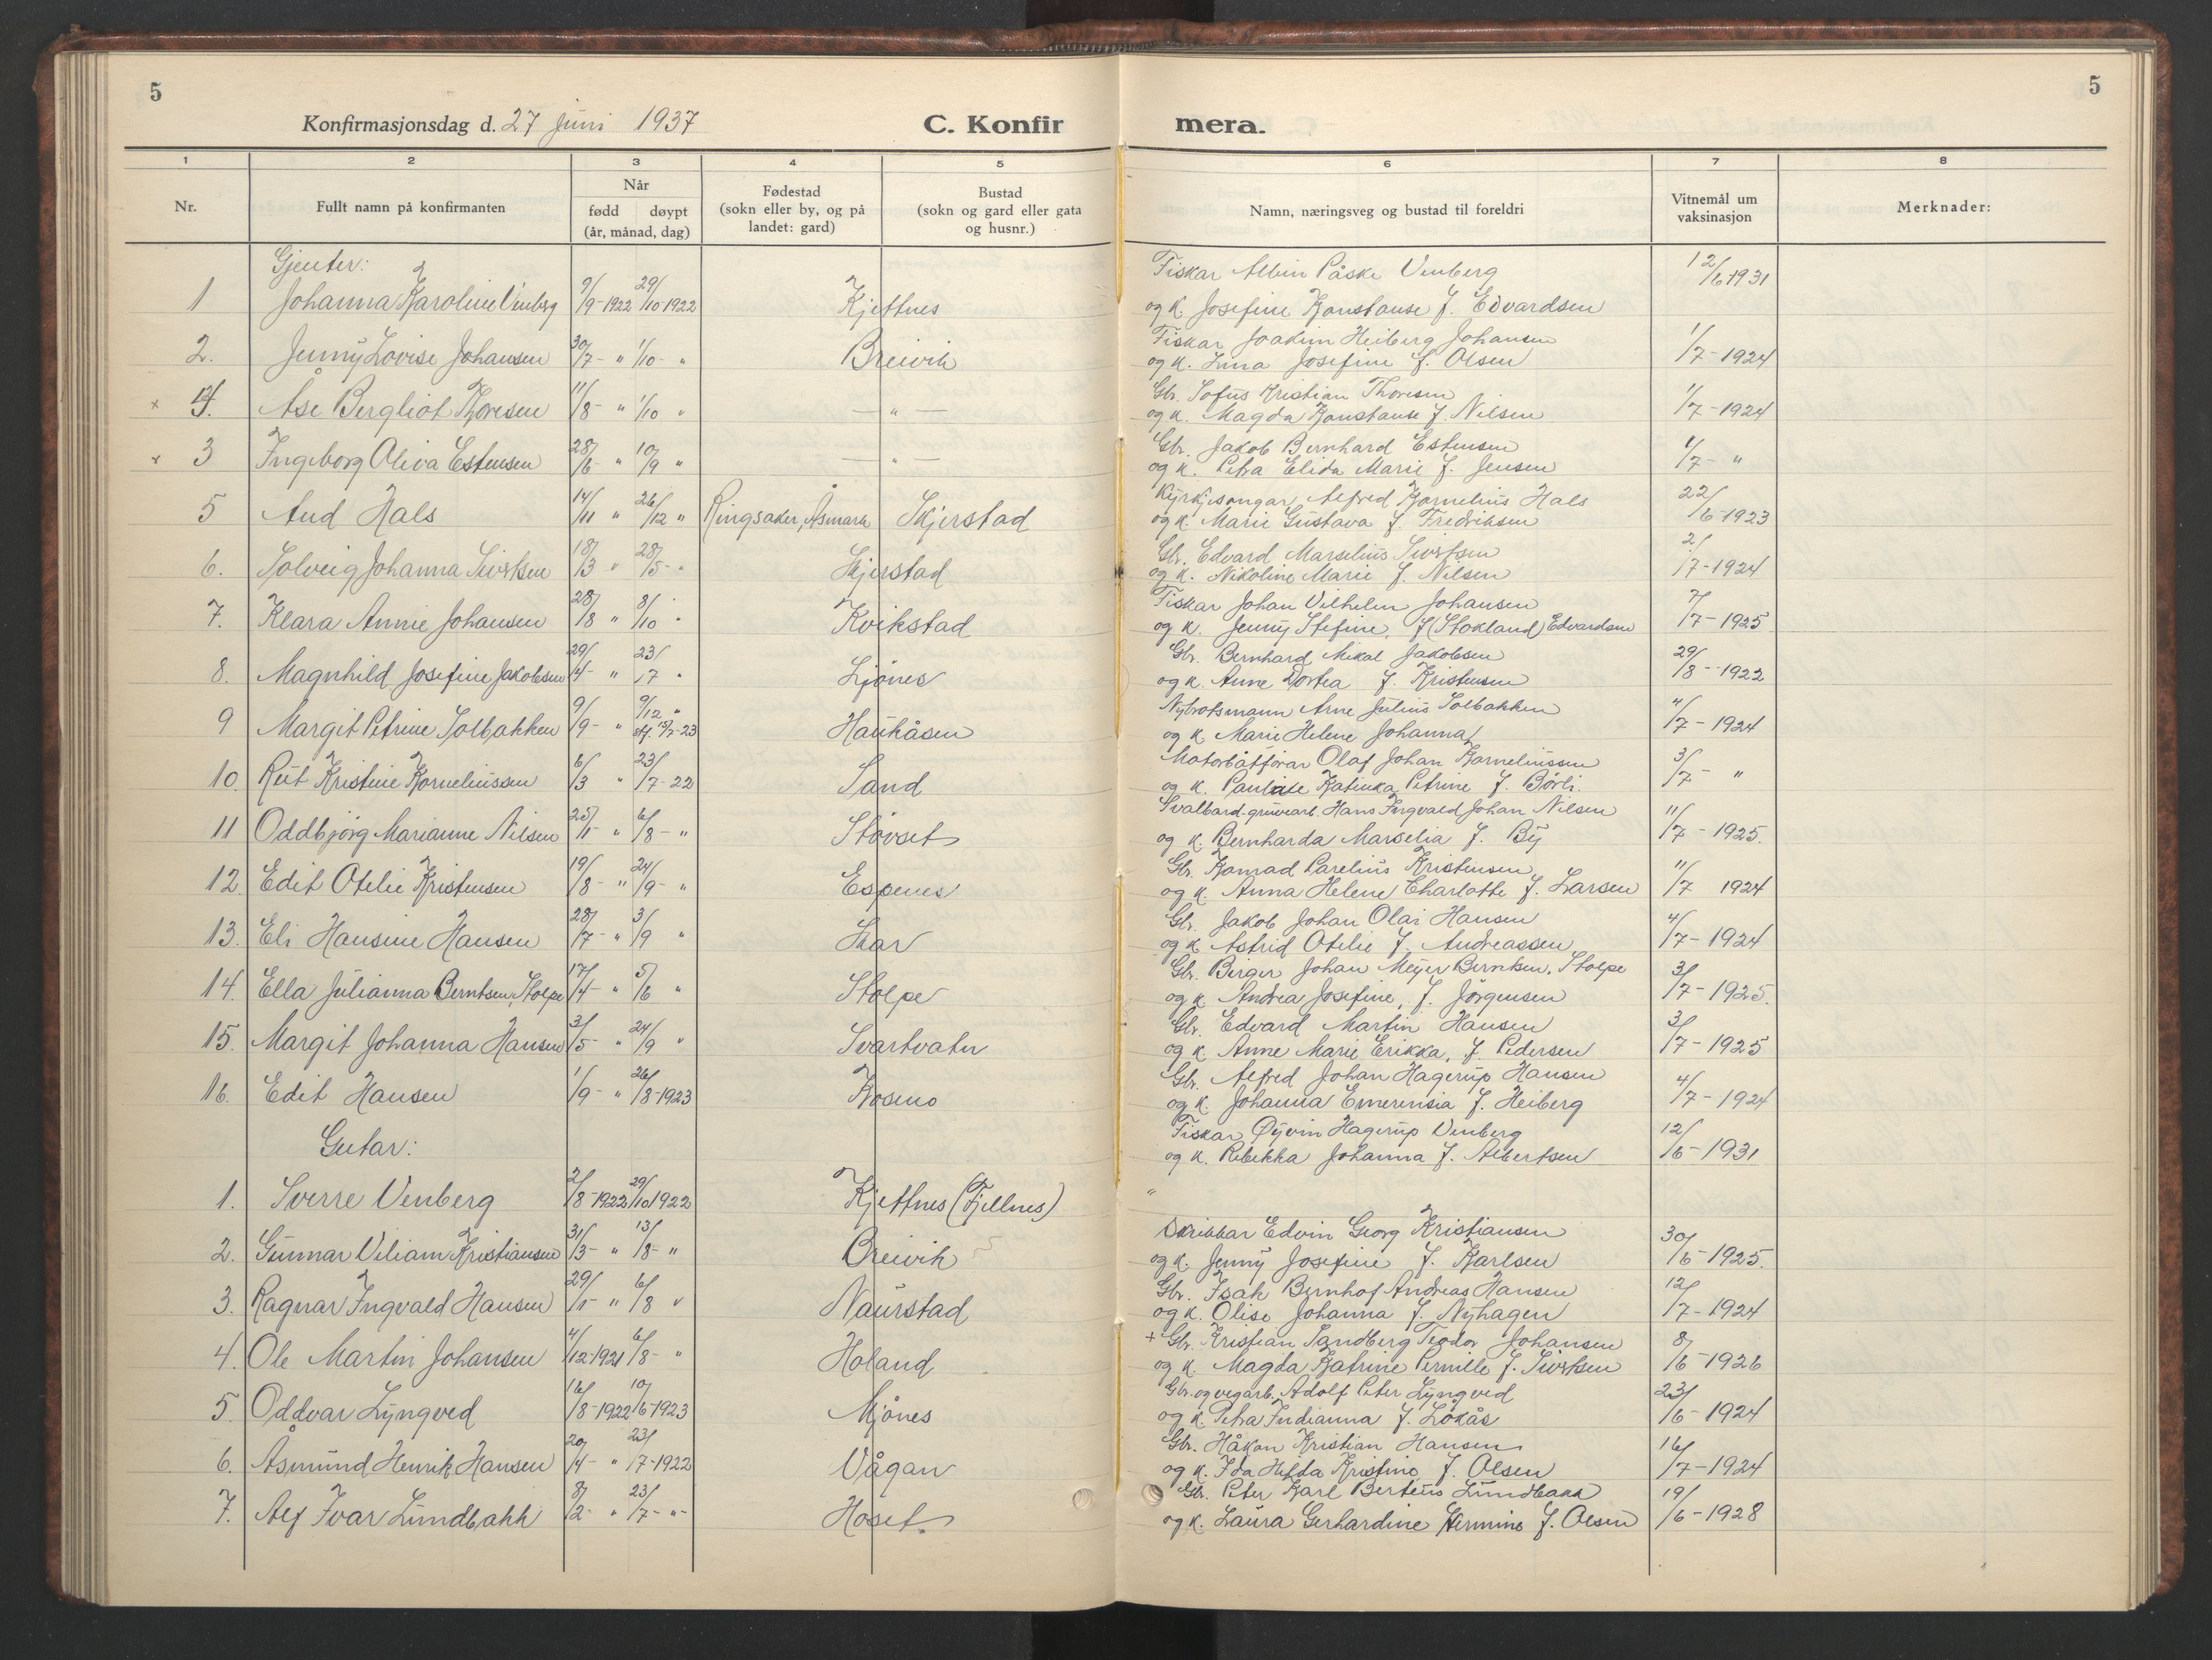 5
Konfirmasjonsdag d. 27 juni 1937
C. Konfir mera.
5
1 2 3 4 5 6 7 8
Nr.
Fullt namn på konfirmanten
Når
født døypt
(år, månad, dag)
Fødestad
(sokn eller by, og på
landet: gard)
Bustad
(sokn og gard eller gata
og husnr.)
Namn, næringsveg og bustad til foreldri
Vitnemål um
vaksinasjon
Merknader:
Gjenter:
1 Johanna Karoline Venberg 9/9-1922 29/10 1922 Kjettnes Fiskar Albin Påske Venberg 12/6 1931
og k. Josefine Konstanse f. Edvardsen
2. Jenny Lovise Johansen 30/7- " 1/10- " Breivik Fiskar Joakim Heiberg Johansen 1/7-1924
og k. Inna Josefine f. Olsen
x 4. Åse Bergliot Thoresen 11/8- " 1/10 " — " — Gbr. Sofus Kristian Thoresen 1/7-1924
og k. Magda Konstanse f. Nilsen
x 3 Ingeborg Oliva Estensen 28/6- " 10/9 " — " — Gbr. Jakob Bernhard Estensen 1/7- "
og k. Petra Elida Marie f. Jensen
5 Aud Hals 14/11 " 26/12 " Ringsaker, Åsmark Skjerstad Kyrkjesongar Alfred Kornelius Hals 22/6-1923
og k. Marie Gustava f. Fredriksen
6. Solveig Johanna Sivertsen 18/3 " 28/5- " Skjerstad Gbr. Edvard Marselius Sivertsen 2/7-1924
og k. Nikoline Marie f. Nilsen
7. Klara Annie Johansen 28/8 " 8/10 " Kvikstad Fiskar Johan Vilhelm Johansen 7/7-1925
og k. Jenny Stefine, f. (Stokland) Edvardsen
8. Magnhild Josefine Jakobsen 29/4- " 23/7 " Ljönes Gbr. Bernhard Mikal Jakobsen 29/8-1922
og k. Anne Dortea f. Kristensen
9 Margit Petrine Solbakken 9/9- " 9/12 " Haukåsen Nybrotsmann Arne Julius Solbakken 11/7-1924
stf 15/7-23
og k. Marie Helene Johanna
10. Rut Kristine Korneliussen 6/3 " 23/7-22 Sand Motorbåtförar Olaf Johan Korneliussen 3/7- "
og k. Pauline Katinka Petrine f. Börli.
11 Oddbjörg Marianne Nilsen 25/1- " 6/8- " Stövset Svalbard-gruvearb. Hans Ingvald Johan Nilsen 11/7-1925.
og k. Bernharda Marselia f. By
12. Edit Otelie Kristensen 19/8- " 24/9- " Espenes Gbr. Konrad Parelius Kristensen 11/7 1924
og k. Anna Helene Charlotte f. Larsen
13. Eli Hansine Hansen 28/7- " 3/9 " Skar Gbr. Jakob Johan Olai Hansen 4/7-1924
og k. Astrid Otelie f. Andreassen
14. Ella Julianna Berntsen, Stolpe 17/4- " 5/6 " Stolpe Gbr. Birger Johan Meyer Berntsen, Stolpe 3/7-1925.
og k. Andrea Josefine, f. Jörgensen
15. Margit Johanna Hansen 3/5- " 24/9 " Svartvatn Gbr. Edvard Martin Hansen 3/7-1925
og k. Anne Marie Erikka, f. Pedersen
16. Edit Hansen 1/9- " 26/8-1923 Kosmo Gbr. Alfred Johan Hagerup Hansen 4/7-1924
og k. Johanna Emerensia f. Heiberg
Gutar:
Fiskar Øyvin Hagerup Venberg 12/6-1931
og k. Rebekka Johanna f. Albertsen
1. Sverre Venberg 2/8-1922 29/10 1922 Kjettnes (Fjellnes) "
2. Gunnar Viliam Kristiansen 31/3- " 13/8- " Breivik Skribbar Edvin Georg Kristiansen 30/6-1925.
og k. Jenny Josefine f. Karlsen
3. Ragnar Ingvald Hansen 29/1- " 6/8 " Naurstad Gbr. Isak Bernhof Andreas Hansen 12/7-1924
og k. Olise Johanna f. Nyhagen
4. Ole Martin Johansen 4/12-1921 6/8- " Holand + Gbr. Kristian Sandberg Teodor Johansen 8/6-1926
og k. Magda Katrine Pernille f. Sivertsen
5. Oddvar Lyngved 16/8-1922 10/6-1923 Mjönes Gbr. og vegarb. Adolf Peter Lyngved 23/6-1924
og k. Petra Indianna f. Lökås
6. Åsmund Henrik Hansen 20/4- " 23/7-1922 Vågan Gbr. Håkon Kristian Hansen 16/7-1924
og k. Ida Hilda Kristine f. Olsen
7. Alf Ivar Lundbakk 8/2- " 23/7- " - Hoset. Gbr. Peter Karl Berteus Lundbakk 19/6-1928
og k. Laura Gerhardine Hermine f. Olsen